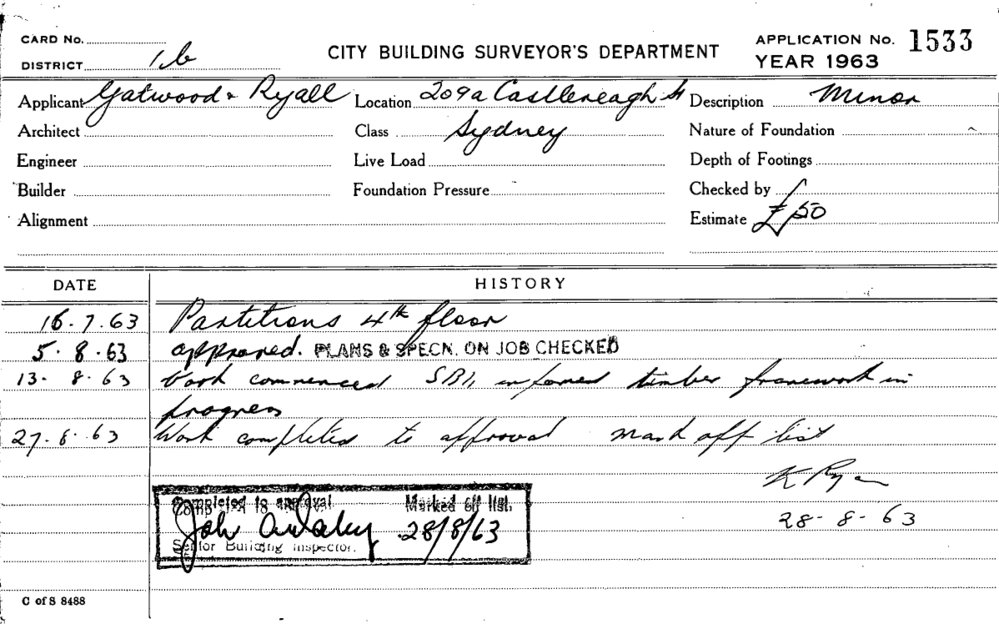 CARD No.
DISTRICT 1b
CITY BUILDING SURVEYOR'S DEPARTMENT
APPLICATION No. 1533
YEAR 1963
Applicant Gatwood & Ryall Location 209a Castlereagh St Description Minor
Architect Class Sydney Nature of Foundation
Engineer Live Load Depth of Footings
Builder Foundation Pressure Checked by
Alignment Estimate £50
DATE HISTORY
16.7.63 Partitions 4th floor
5.8.63 approved. PLANS & SPECN. ON JOB CHECKED
13.8.63 Work commenced SBI, informed timber framework in
progress
27.8.63 Work completed to approval mark off list
K Ryan
28-8-63
Completed to approval Marked off list.
28/8/63
Senior Building Inspector.
C of S 8488